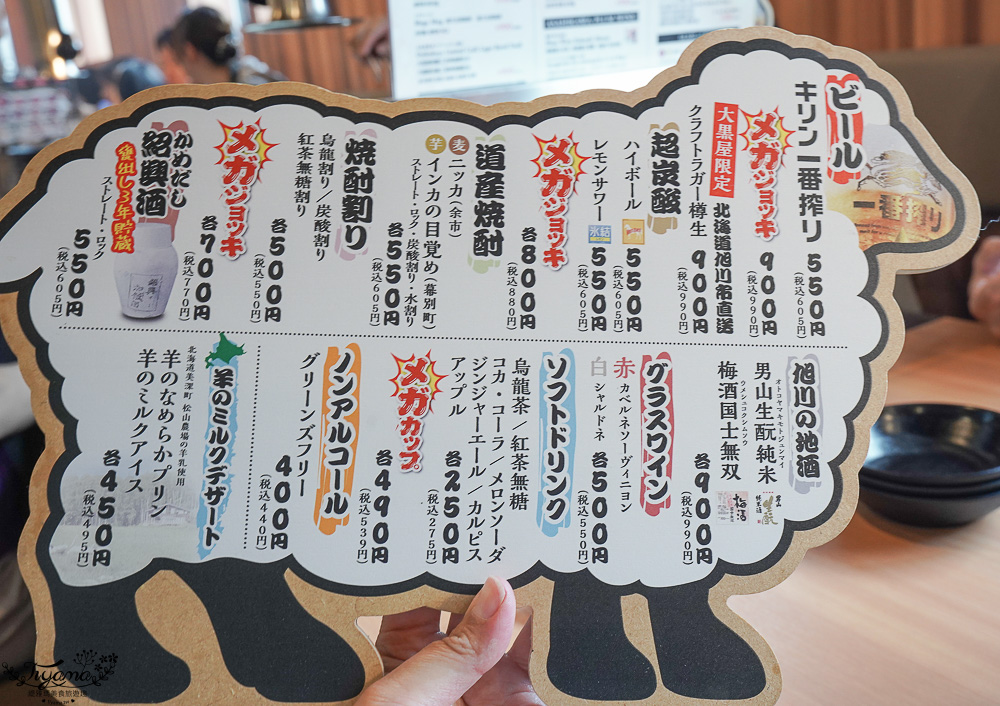 ビール
キリン一番搾り 550円
(税込605円)
メガジョッキ 900円
(税込990円)
大黒屋限定
北海道旭川市直送
クラフトラガー樽生 900円
(税込990円)
超炭酸
ハイボール 550円
(税込605円)
レモンサワー 氷結 550円
(税込605円)
メガジョッキ 各800円
(税込880円)
道産焼酎
麦 ニッカ(余市)
芋 インカの目覚め(幕別町)
ストレート・ロック・炭酸割り・水割り
各550円
(税込605円)
焼酎割り
烏龍割り/炭酸割り
紅茶無糖割り
各500円
(税込550円)
メガジョッキ 各700円
(税込770円)
かめだし
紹興酒
甕出し3年貯蔵
ストレート・ロック
550円
(税込605円)
一番搾り
旭川の地酒
オトコヤマキモトジュンマイ
男山生酛純米
ウメシュコクシムソウ
梅酒国士無双
各900円
(税込990円)
梅酒
グラスワイン
赤 カベルネソーヴィニヨン
白 シャルドネ
各500円
(税込550円)
ソフトドリンク
烏龍茶/紅茶無糖
コカ・コーラ/メロンソーダ
ジンジャーエール/カルピス
アップル
各250円
(税込275円)
メガカップ 各490円
(税込539円)
ノンアルコール
グリーンズフリー 400円
(税込440円)
羊のミルクデザート
北海道美深町 松山農場の羊乳使用
羊のなめらかプリン
羊のミルクアイス
各450円
(税込495円)
Tiyama